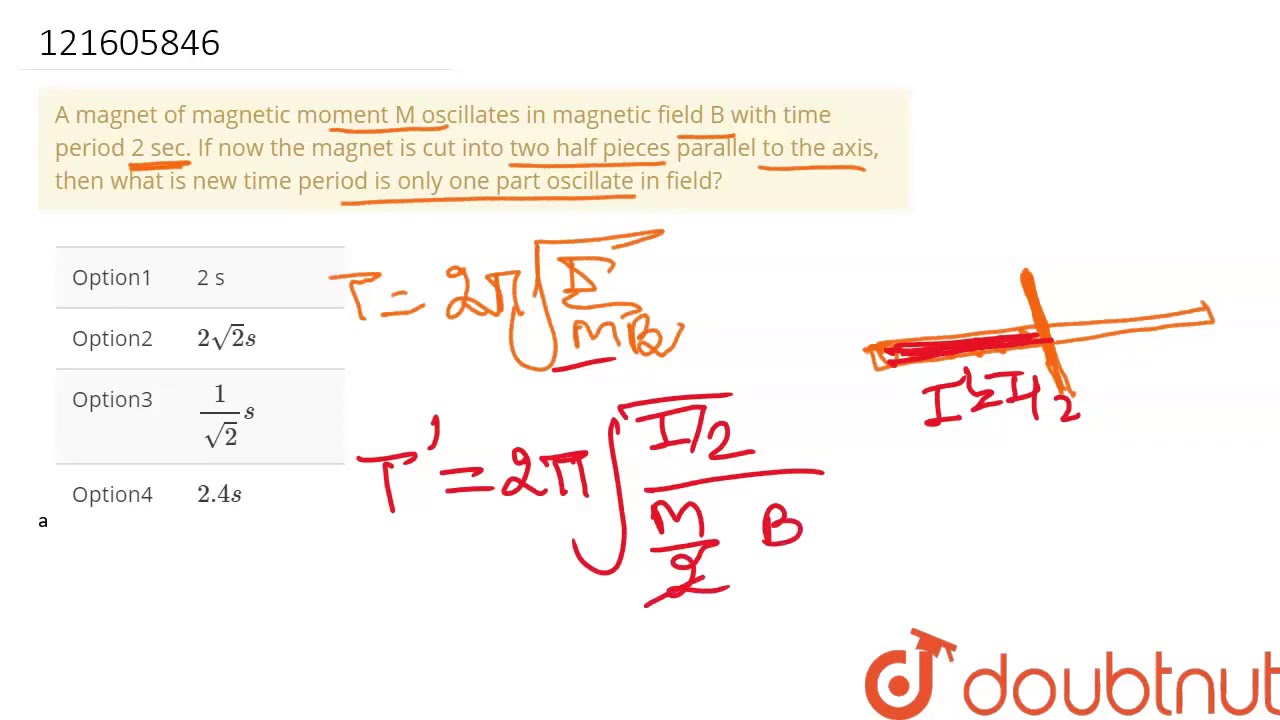 121605846
A magnet of magnetic moment M oscillates in magnetic field B with time
period 2 sec. If now the magnet is cut into two half pieces parallel to the axis,
then what is new time period is only one part oscillate in field?
Option1 2 s
Option2 2√2s
Option3 1/√2 s
Option4 2.4s
a
T = 2π√(I/MB)
I' = I/2
T' = 2π√((I/2)/((M/2) B))
doubtnut